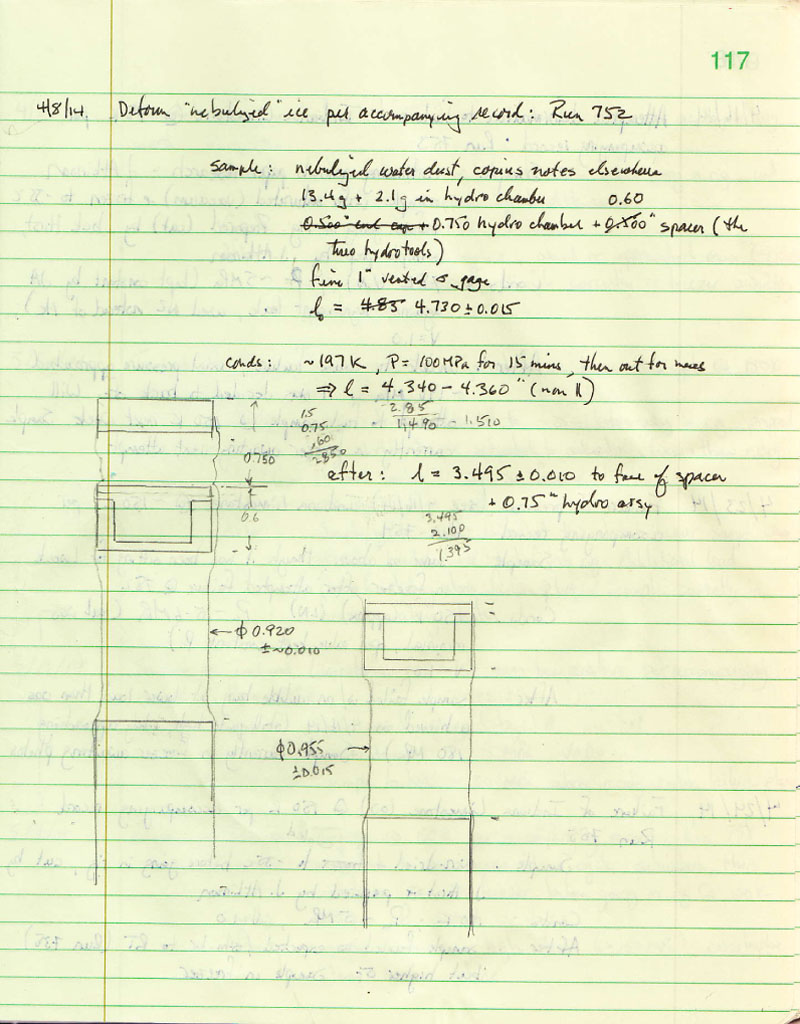 117
4/8/14. Deform "nebulized" ice per accompanying record: Run 752
sample: nebulized water dust, copius notes elsewhere
13.4g + 2.1g in hydro chamber 0.60
0.500" end cap + 0.750 hydro chamber + 0.500" spacer (the
two hydrotools)
1" vented σ gage
l₀ = 4.85 4.730 ± 0.015
conds: ~197K, P = 100MPa for 15 mins, then out for meas
⇒ l = 4.340 - 4.360" (non ||)
1.5
0.75
.60
2.850
2.85
1.490 - 1.510
0.750
0.6
after: l = 3.495 ± 0.010 to face of spacer
+ 0.75" hydro assy
3.495
2.100
1.395
ϕ 0.920
± ~0.010
ϕ0.955
±0.015